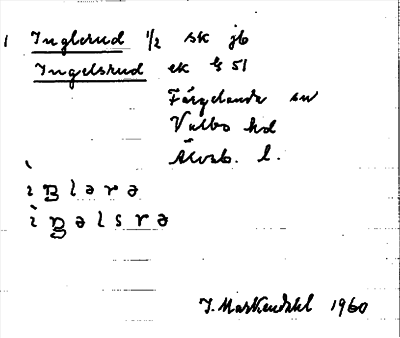 1 Inglerud 1/2 sk jb
Ingelsrud ek § 51
Färgelanda sn
Valbo hd
Älvsb. l.
ìŋlərə
ìŋəlsrə
J. Markendahl 1960